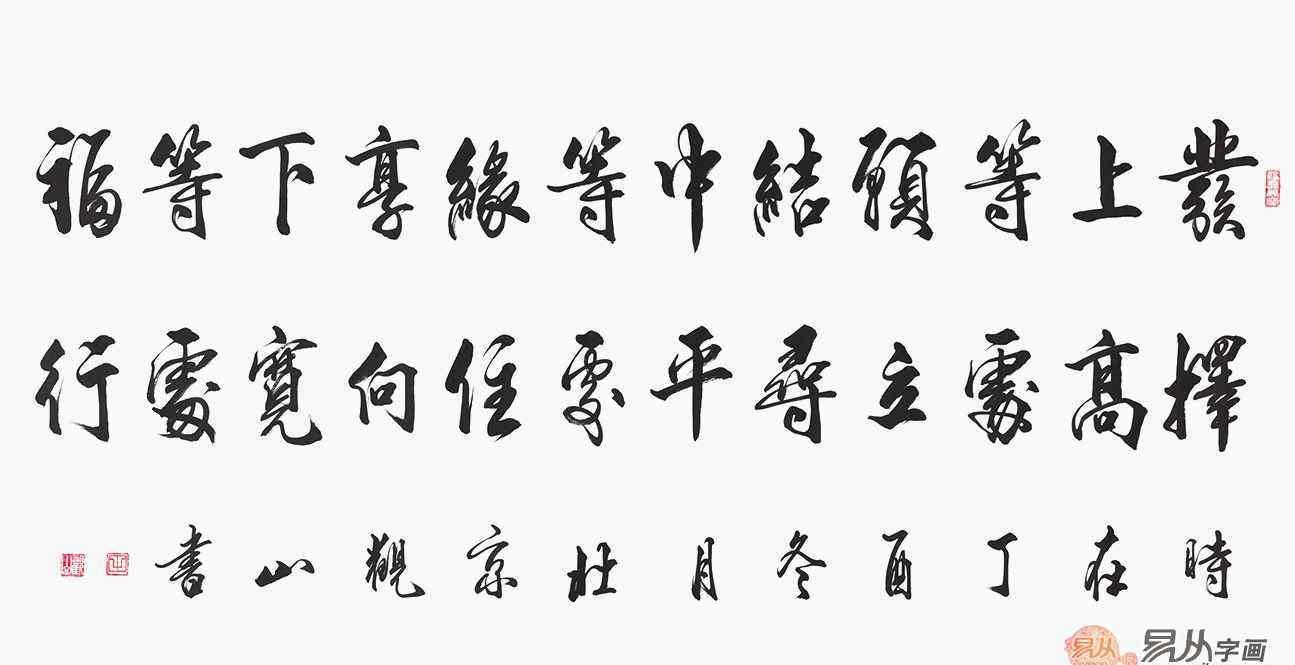 發上等願結中等緣享下等福
擇高處立尋平處住向寬處行
時在丁酉冬月於京觀山书
易从
易从字画